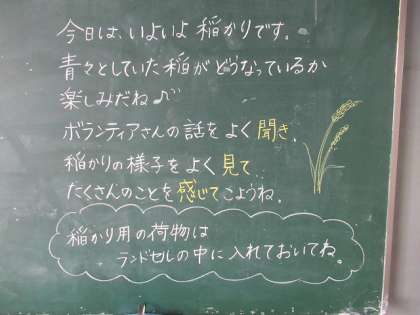 今日は、いよいよ稲かりです。
青々としていた稲がどうなっているか
楽しみだね♪
ボランティアさんの話をよく聞き、
稲かりの様子をよく見て
たくさんのことを感じてこようね。
稲かり用の荷物は
ランドセルの中に入れておいてね。